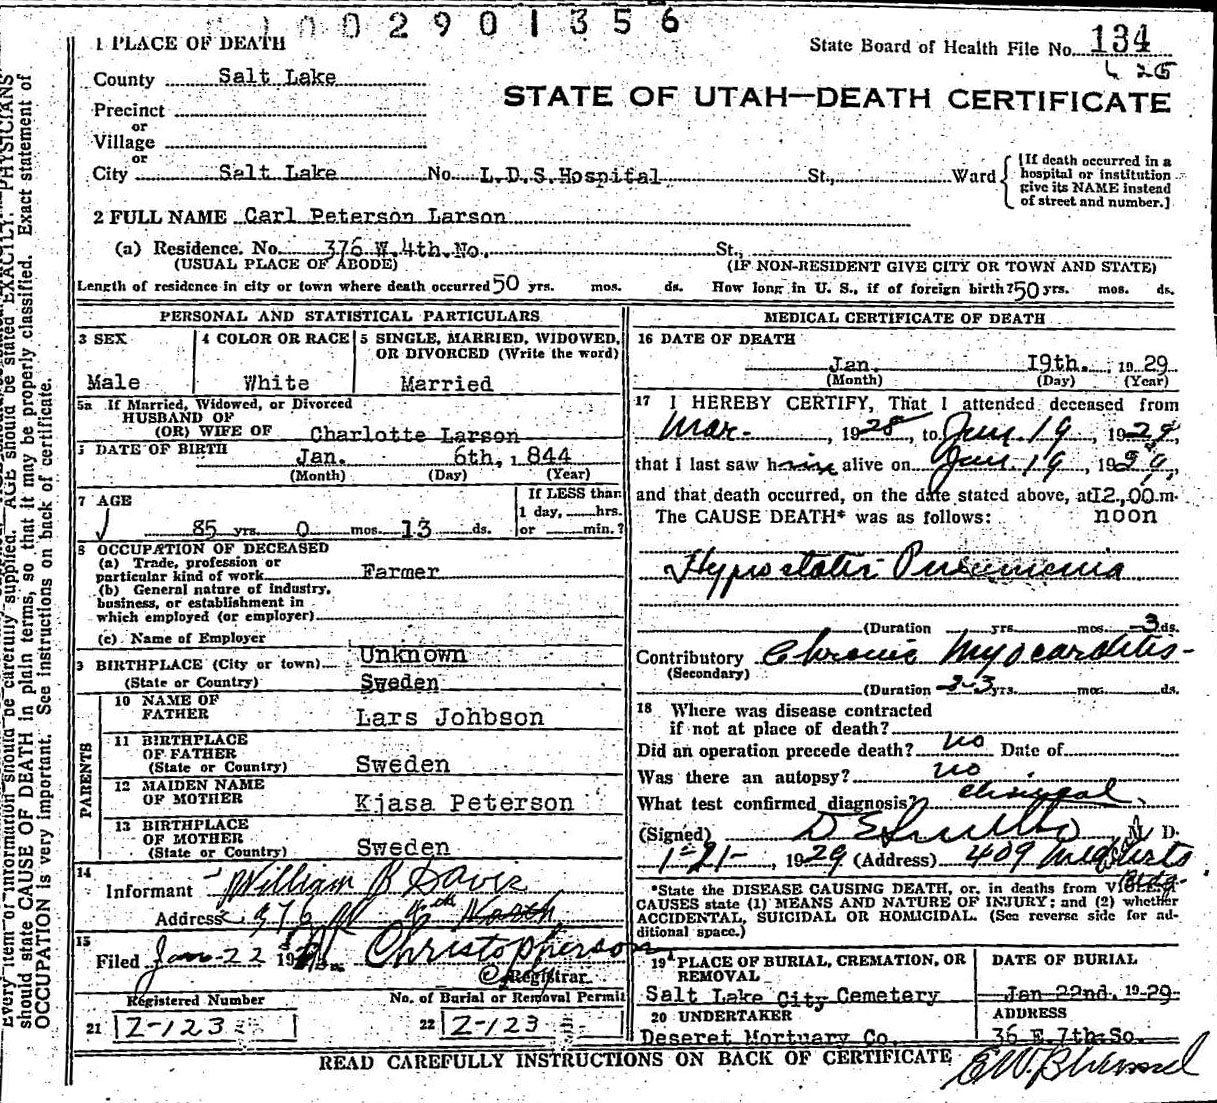 1002901356
1 PLACE OF DEATH
State Board of Health File No. 134
County Salt Lake
STATE OF UTAH—DEATH CERTIFICATE
Precinct
or
Village
or
City Salt Lake No. L.D.S.Hospital St., Ward
[If death occurred in a hospital or institution give its NAME instead of street and number.]
2 FULL NAME Carl Peterson Larson
(a) Residence. No. 376 W.4th.No. St.,
(USUAL PLACE OF ABODE) (IF NON-RESIDENT GIVE CITY OR TOWN AND STATE)
Length of residence in city or town where death occurred 50 yrs. mos. ds. How long in U. S., if of foreign birth? 50 yrs. mos. ds.
PERSONAL AND STATISTICAL PARTICULARS
3 SEX
Male
4 COLOR OR RACE
White
5 SINGLE, MARRIED, WIDOWED, OR DIVORCED (Write the word)
Married
5a If Married, Widowed, or Divorced
HUSBAND OF
(OR) WIFE OF Charlotte Larson
DATE OF BIRTH Jan. 6th, 1844
(Month) (Day) (Year)
7 AGE
85 yrs. 0 mos. 13 ds.
If LESS than
1 day, hrs.
or min.?
8 OCCUPATION OF DECEASED
(a) Trade, profession or
particular kind of work Farmer
(b) General nature of industry,
business, or establishment in
which employed (or employer)
(c) Name of Employer
9 BIRTHPLACE (City or town) Unknown
(State or Country) Sweden
PARENTS
10 NAME OF
FATHER Lars Johbson
11 BIRTHPLACE
OF FATHER
(State or Country) Sweden
12 MAIDEN NAME
OF MOTHER Kjasa Peterson
13 BIRTHPLACE
OF MOTHER
(State or Country) Sweden
14
Informant William B Davis
Address 376 W 4th North
15
Filed Jan-22 192 Christopherson
Registrar
Registered Number No. of Burial or Removal Permit
21 Z-123 22 Z-123
MEDICAL CERTIFICATE OF DEATH
16 DATE OF DEATH
Jan. 19th. 1929
(Month) (Day) (Year)
17 I HEREBY CERTIFY, That I attended deceased from
Mar. , 1928, to Jan. 19, 1929,
that I last saw him alive on Jan. 19, 1929,
and that death occurred, on the date stated above, at 12.,00.m.
The CAUSE DEATH* was as follows: noon
Hypostatic Pneumonia
(Duration yrs. mos. 3 ds.
Contributory Chronic Myocarditis-
(Secondary)
(Duration 2-3 yrs. mos. ds.
18 Where was disease contracted
if not at place of death?
Did an operation precede death? no Date of
Was there an autopsy? no
What test confirmed diagnosis? clinical
(Signed) M. D.
1-21-, 1929 (Address) 409 Bldg.
*State the DISEASE CAUSING DEATH, or, in deaths from VIOLENT
CAUSES state (1) MEANS AND NATURE OF INJURY; and (2) whether
ACCIDENTAL, SUICIDAL OR HOMICIDAL. (See reverse side for ad-
ditional space.)
19 PLACE OF BURIAL, CREMATION, OR
REMOVAL
Salt Lake City Cemetery
DATE OF BURIAL
Jan 22nd. 1929
20 UNDERTAKER
Deseret Mortuary Co.
ADDRESS
36 E.7th.So.
READ CAREFULLY INSTRUCTIONS ON BACK OF CERTIFICATE
Every item of information should be carefully supplied. AGE should be stated EXACTLY. PHYSICIANS
should state CAUSE OF DEATH in plain terms, so that it may be properly classified. Exact statement of
OCCUPATION is very important. See instructions on back of certificate.